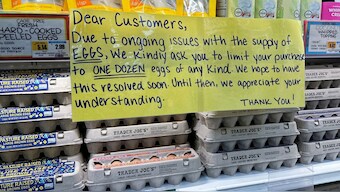 Dear Customers,
Due to ongoing issues with the supply of
EGGS, we kindly ask you to limit your purchase
to ONE DOZEN eggs of any kind. We hope to have
this resolved soon. Until then, we appreciate your
understanding.
THANK YOU!
CAGE FREE
FRESH
HARD-COOKED
PEELED EGGS
PASTURE RAISED
PASTURE RAISED
PASTURE RAISED
PASTURE RAISED
TRADER JOE'S
TRADER JOE'S
TRADER JOE'S
TRADER JOE'S
TRADER JOE'S
TRADER JOE'S